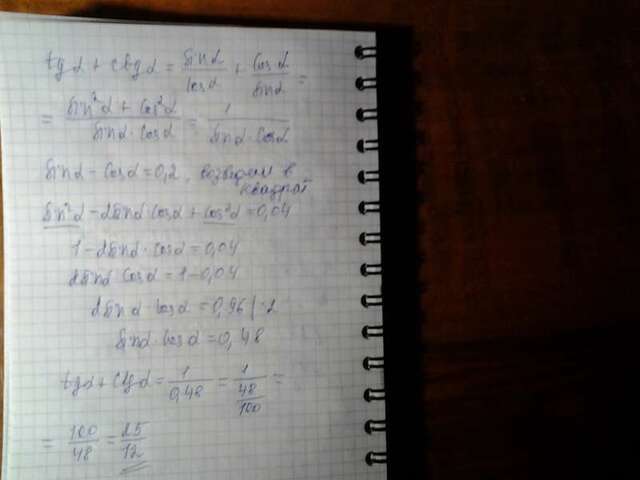 tg α + ctg α = sin α / cos α + cos α / sin α =
= (sin² α + cos² α) / (sin α · cos α) = 1 / (sin α · cos α)
sin α − cos α = 0,2, возведем в
квадрат
sin² α − 2 sin α cos α + cos² α = 0,04
1 − 2 sin α · cos α = 0,04
2 sin α cos α = 1 − 0,04
2 sin α cos α = 0,96 | :2
sin α · cos α = 0,48
tg α + ctg α = 1 / 0,48 = 1 / (48 / 100) =
= 100 / 48 = 25 / 12